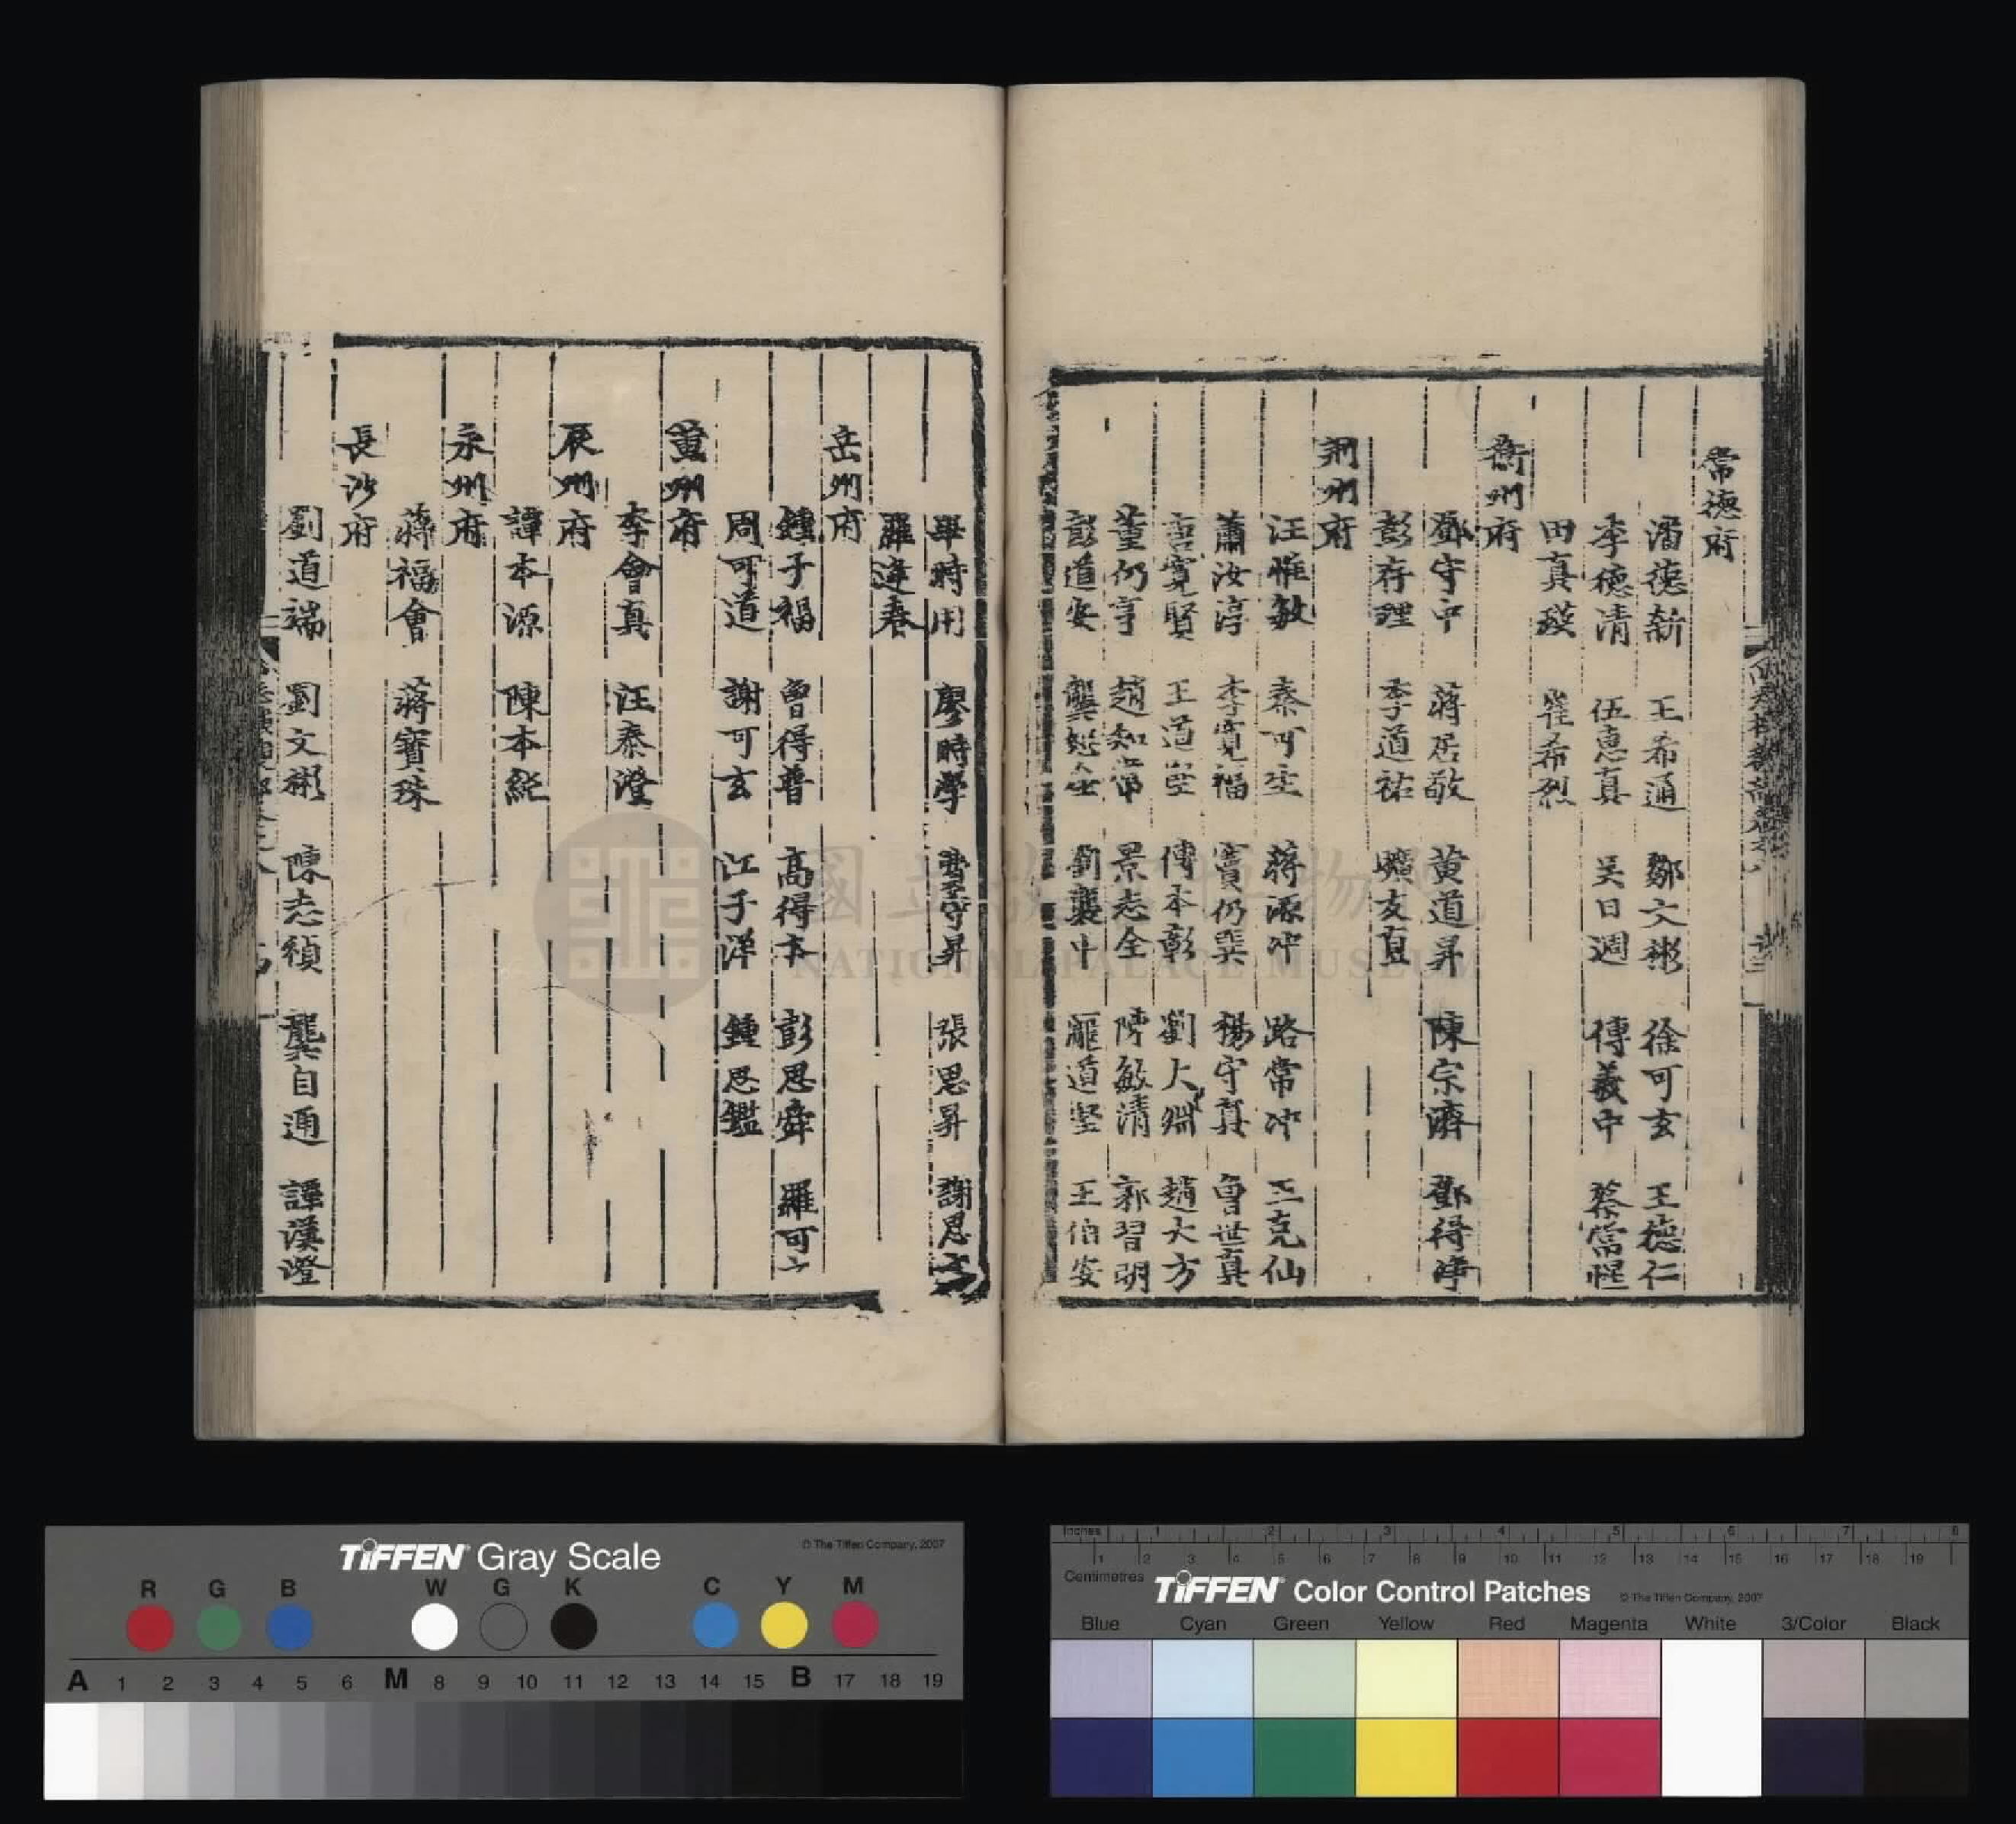 常德府
潘德新 王希通 鄒文彬 徐可玄 王德仁
李德清 伍惠真 吴日週 傅義中 蔡常惺
田真護 崔希烈
衡州府
鄧守中 蔣居敬 黄道昇 陳宗濟 鄧得淨
彭存理 李道祐 曠友直
荆州府
汪惟敏 秦可 蔣源冲 路常冲 王克仙
蕭汝淳 李寛福 竇仍巽 楊守真 曾世真
唐寛賢 王道堅 傅本彰 劉大淵 趙大方
董仍亨 趙知常 景志全 陳敏清 郭習明
彭道安 龔 劉襲中 龐道堅 王伯安
畢時用 廖時學 守昇 張思昇 謝思
羅逢春
岳州府
鍾子福 曾得普 高得本 彭思舜 羅可
周可道 謝可玄 江子洋 鍾思鑑
黄州府
李會真 汪泰澄
辰州府
譚本源 陳本純
永州府
蔣福會 蔣寶珠
長沙府
劉道端 劉文彬 陳志禎 龔自通 譚漢澄
國立故宮博物院
NATIONAL PALACE MUSEUM
TIFFEN Gray Scale
© The Tiffen Company, 2007
R G B W G K C Y M
A 1 2 3 4 5 6 M 8 9 10 11 12 13 14 15 B 17 18 19
Inches 1 2 3 4 5 6 7 8
1 2 3 4 5 6 7 8 9 10 11 12 13 14 15 16 17 18 19
Centimetres
TIFFEN Color Control Patches
© The Tiffen Company, 2007
Blue Cyan Green Yellow Red Magenta White 3/Color Black